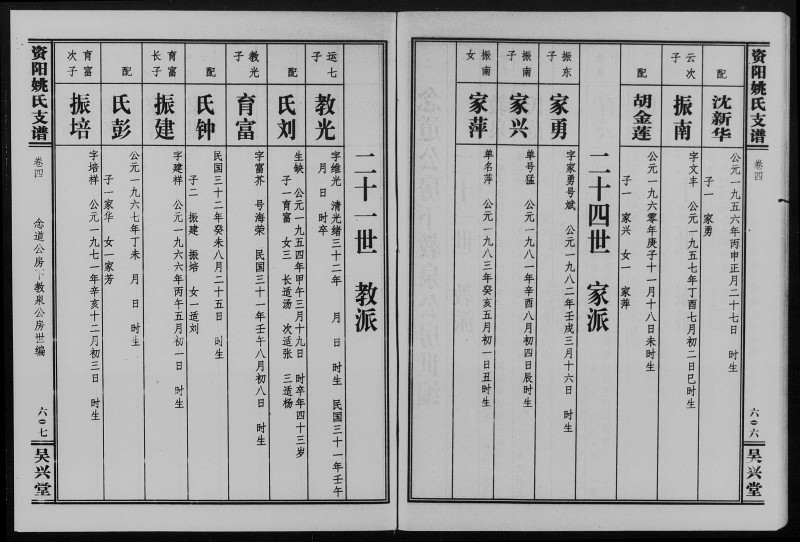 资阳姚氏支谱
卷四
六〇六
吴兴堂
配
沈新华
公元一九五六年丙申正月二十七日 时生
子一 家勇
云次子
振南
字文丰 公元一九五七年丁酉七月初二日巳时生
配
胡金莲
公元一九六零年庚子十一月十八日未时生
子一 家兴 女一 家萍
二十四世 家派
振东子
家勇
字家勇号斌 公元一九八二年壬戌三月十六日 时生
振南子
家兴
单号猛 公元一九八一年辛酉八月初四日辰时生
振南女
家萍
单名萍 公元一九八三年癸亥五月初一日丑时生
二十一世 教派
运七子
教光
字维光 清光绪三十二年 月 日 时生 民国三十一年壬午
月 日 时卒
配
氏刘
生缺 公元一九五四年甲午三月十九日 时卒年四十三岁
子一育富 女三 长适汤 次适张 三适杨
教光子
育富
字富芥 号海荣 民国三十一年壬午八月初八日 时生
配
氏钟
民国三十二年癸未八月二十五日 时生
子二 振建 振培 女一适刘
育富长子
振建
字建样 公元一九六六年丙午五月初一日 时生
配
氏彭
公元一九六七年丁未 月 日 时生
子一家华 女一家芳
育富次子
振培
字培样 公元一九七一年辛亥十二月初三日 时生
资阳姚氏支谱
卷四
念道公房下教泉公房世编
六〇七
吴兴堂